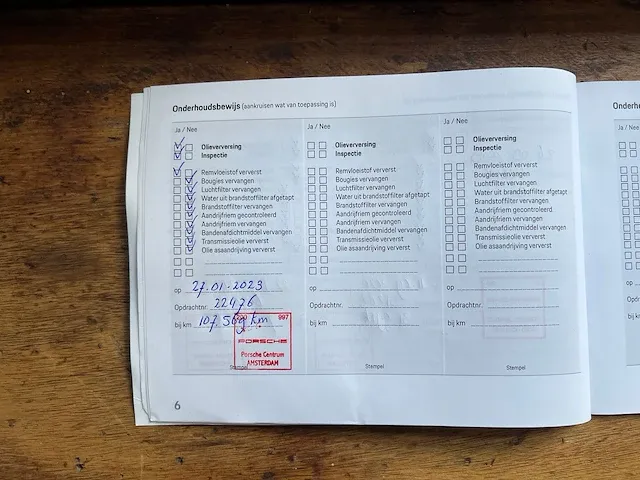 Onderhoudsbewijs (aankruisen wat van toepassing is)
Ja / Nee
Olieverversing
Inspectie
Remvloeistof ververst
Bougies vervangen
Luchtfilter vervangen
Water uit brandstoffilter afgetapt
Brandstoffilter vervangen
Aandrijfriem gecontroleerd
Aandrijfriem vervangen
Bandenafdichtmiddel vervangen
Transmissieolie ververst
Olie asaandrijving ververst
op 27.01.2023
Opdrachtnr. 22476
bij km
997
PORSCHE
Porsche Centrum
AMSTERDAM
Ja / Nee
Olieverversing
Inspectie
Remvloeistof ververst
Bougies vervangen
Luchtfilter vervangen
Water uit brandstoffilter afgetapt
Brandstoffilter vervangen
Aandrijfriem gecontroleerd
Aandrijfriem vervangen
Bandenafdichtmiddel vervangen
Transmissieolie ververst
Olie asaandrijving ververst
op
Opdrachtnr.
bij km
Stempel
Ja / Nee
Olieverversing
Inspectie
Remvloeistof ververst
Bougies vervangen
Luchtfilter vervangen
Water uit brandstoffilter afgetapt
Brandstoffilter vervangen
Aandrijfriem gecontroleerd
Aandrijfriem vervangen
Bandenafdichtmiddel vervangen
Transmissieolie ververst
Olie asaandrijving ververst
op
Opdrachtnr.
bij km
Stempel
6
Onderh
Ja / Nee
op
Opdra
bij km